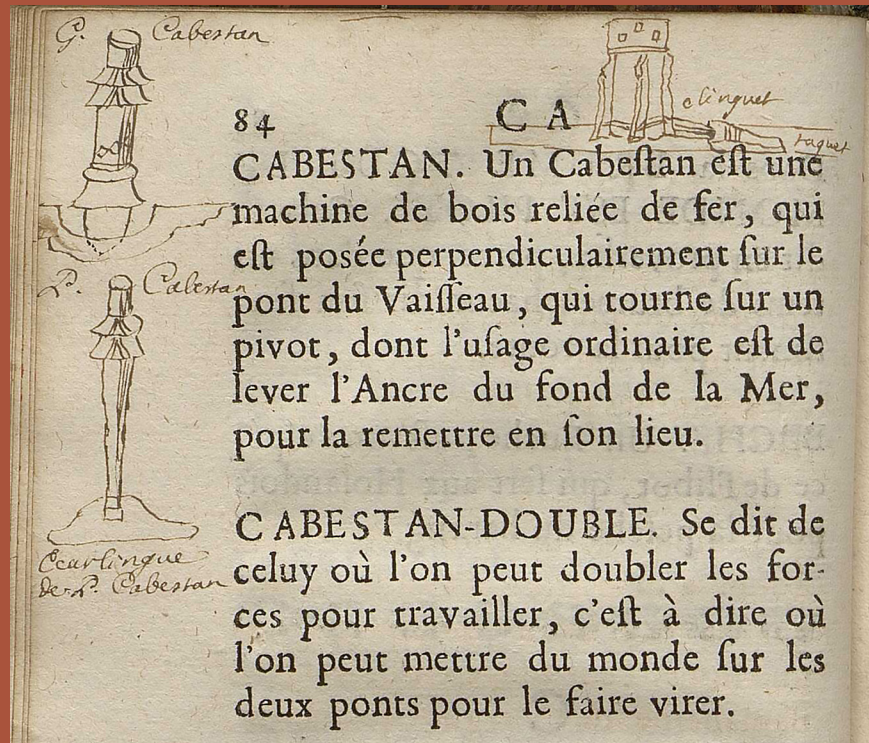 G. Cabestan
84 C A
clinguet
taquet
CABESTAN. Un Cabeſtan eſt une
machine de bois reliée de fer, qui
eſt posée perpendiculairement ſur le
pont du Vaiſſeau, qui tourne ſur un
pivot, dont l'uſage ordinaire eſt de
lever l'Ancre du fond de la Mer,
pour la remettre en ſon lieu.
P. Cabestan
CABESTAN-DOUBLE. Se dit de
celuy où l'on peut doubler les for-
ces pour travailler, c'eſt à dire où
l'on peut mettre du monde ſur les
deux ponts pour le faire virer.
Ecarlingue
de P. Cabestan